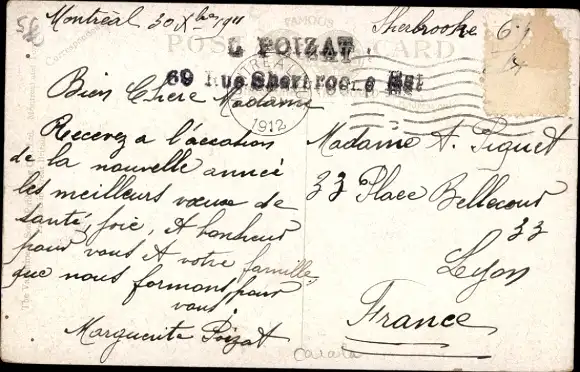 Montréal 30 Xbre 1911
Sherbrooke
FAMOUS
POST CARD
L POIZAT
69 Rue Sherbrooke Est
1912
Bien Chere Madame
Recevez a l'occasion
de la nouvelle année
les meilleurs voeux de
santé, joie, & bonheur
pour vous & votre famille,
que nous formons pour
vous
Marguerite Poizat
Madame A. Piguet
33 Place Bellecour
33
Lyon
France
Canada